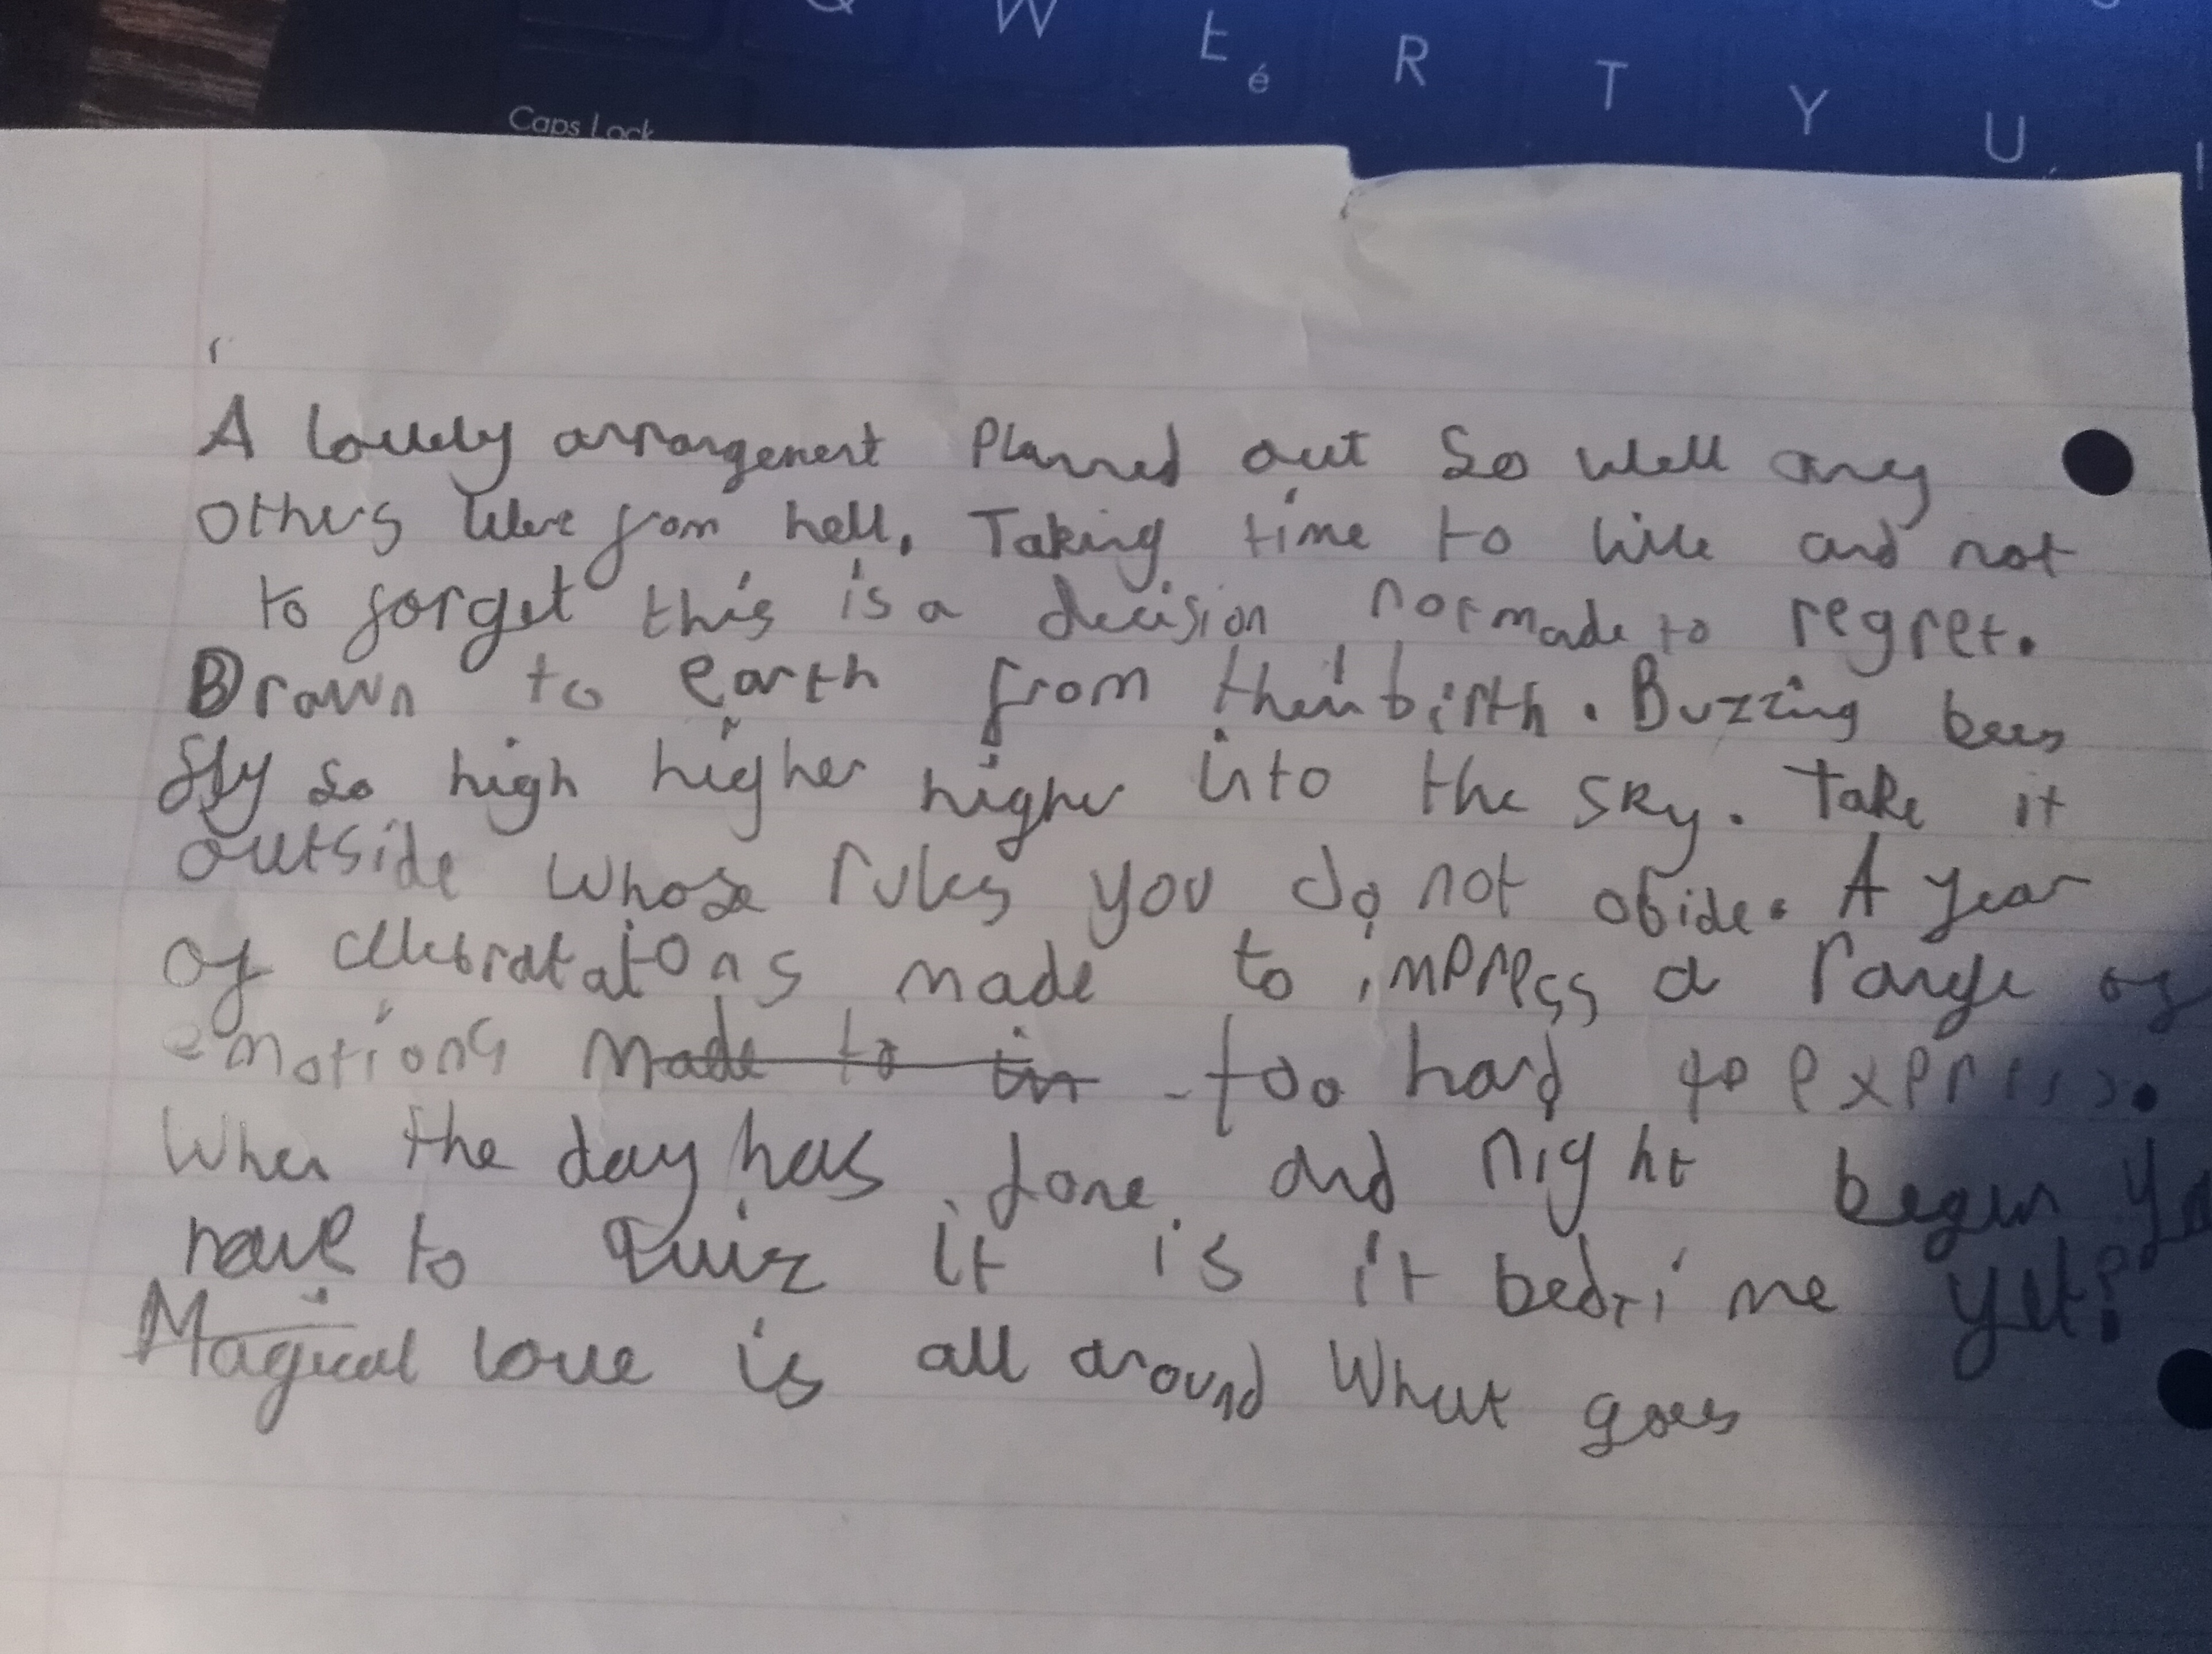 W E R T Y U
é
Caps Lock
A lovely arrangement Planned out So well any
others were from hell. Taking time to live and not
to forget this is a decision not made to regret.
Drawn to earth from their birth. Buzzing bees
fly so high higher higher into the sky. Take it
outside whose rules you do not abide. A year
of celebratations made to impress a range of
emotions made to im too hard to express.
When the day has done and night begun
have to quiz it is it bedtime yet?
Magical love is all around What goes